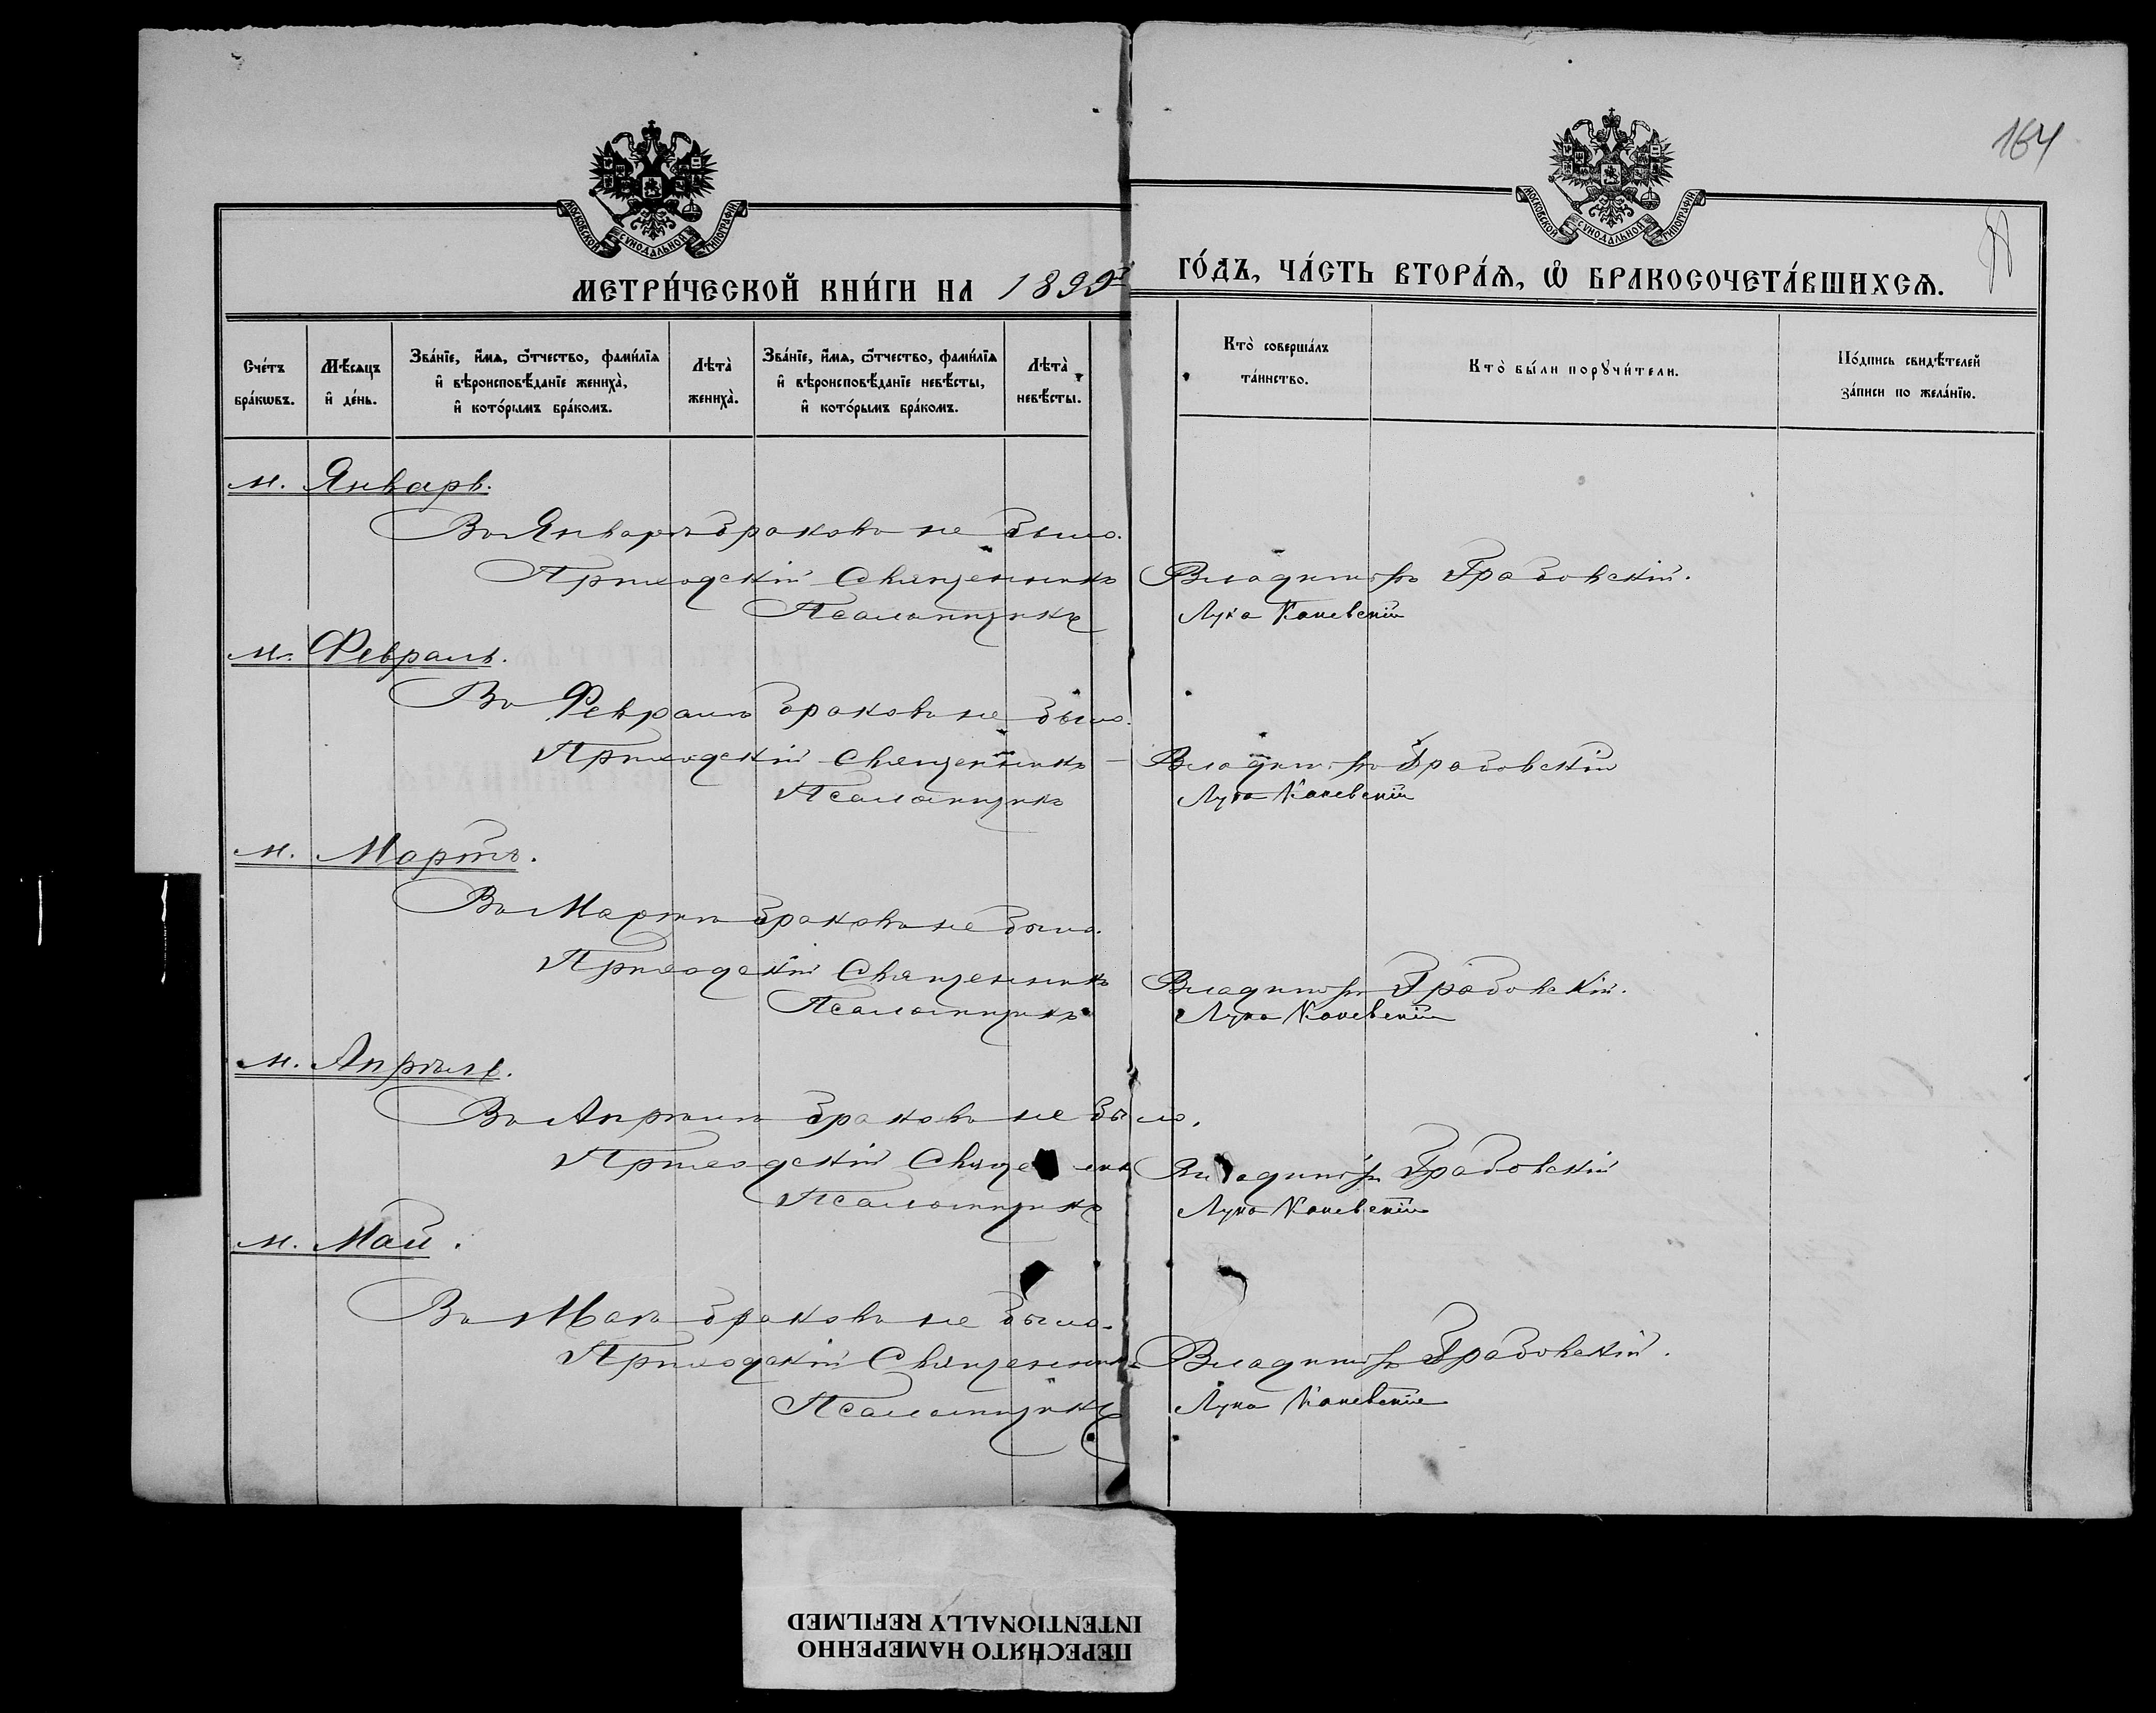 164
МОСКОВСКОЙ СѴНОДАЛЬНОЙ ТИПОГРАФІИ
МОСКОВСКОЙ СѴНОДАЛЬНОЙ ТИПОГРАФІИ
МЕТРИ́ЧЕСКОЙ КНИ́ГИ НА 1899й ГО́ДЪ, ЧА́СТЬ ВТОРА́Ѧ, Ѽ БРАКОСОЧЕТА́ВШИХСѦ.
Сче́тъ бра́кѡвъ.
Мѣ́сѧцъ и҆ де́нь.
Зва́нїе, и҆́мѧ, ѻ҆́тчество, фами́лїѧ и҆ вѣроисповѣ́данїе жениха̀, и҆ кото́рымъ бра́комъ.
Лѣта̀ жениха̀.
Зва́нїе, и҆́мѧ, ѻ҆́тчество, фами́лїѧ и҆ вѣроисповѣ́данїе невѣ́сты, и҆ кото́рымъ бра́комъ.
Лѣта̀ невѣ́сты.
Кто̀ соверша́лъ та́инство.
Кто̀ бы́ли порꙋчи́тели.
По́дпись свидѣ́телей за́писи по жела́нїю.
м. Январь.
Въ Январѣ браковъ не было.
Приходскій Священникъ Владиміръ Грабовскій.
Псаломщикъ Лука Каневскій
м. Февраль.
Въ Февралѣ браковъ не было.
Приходскій Священникъ – Владиміръ Грабовскій
Псаломщикъ Лука Каневскій
м. Мартъ.
Въ Мартѣ браковъ не было.
Приходскій Священникъ Владиміръ Грабовскій.
Псаломщикъ Лука Каневскій
м. Апрѣль.
Въ Апрѣлѣ браковъ не было.
Приходскій Священникъ Владиміръ Грабовскій
Псаломщикъ Лука Каневскій
м. Май.
Въ Маѣ браковъ не было.
Приходскій Священникъ Владиміръ Грабовскій.
Псаломщикъ Лука Каневскій
ПЕРЕСНЯТО НАМЕРЕННО
INTENTIONALLY REFILMED